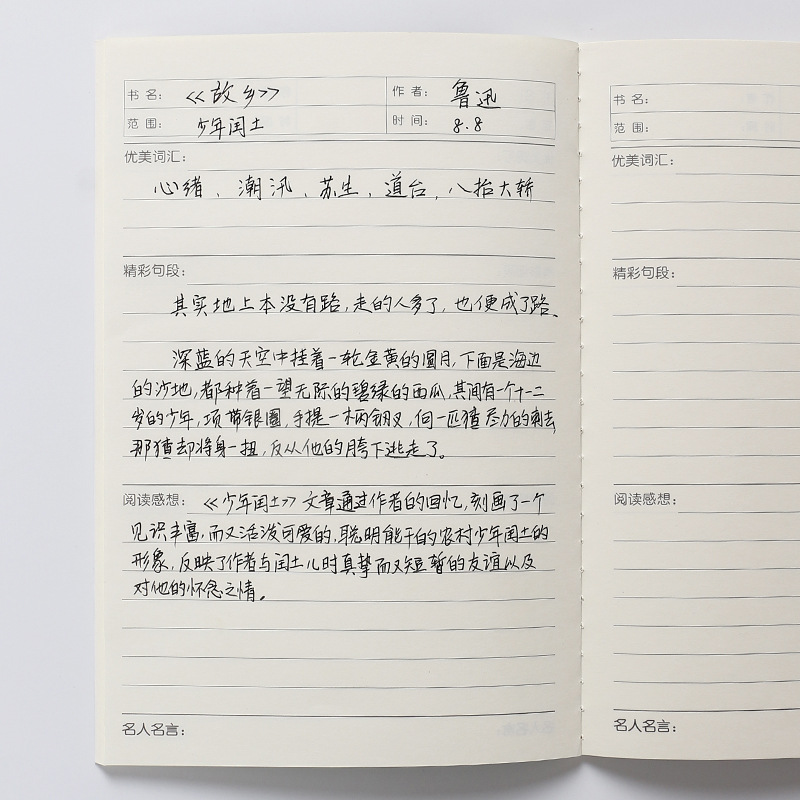 书 名: 《故乡》 作 者: 鲁迅
范 围: 少年闰土 时 间: 8.8
优美词汇:
心绪、潮汛、苏生、道台、八抬大轿
精彩句段:
其实地上本没有路,走的人多了,也便成了路。
深蓝的天空中挂着一轮金黄的圆月,下面是海边
的沙地,都种着一望无际的碧绿的西瓜,其间有一个十一二
岁的少年,项带银圈,手捏一柄钢叉,向一匹猹尽力的刺去,
那猹却将身一扭,反从他的胯下逃走了。
阅读感想: 《少年闰土》文章通过作者的回忆,刻画了一个
见识丰富,而又活泼可爱的,聪明能干的农村少年闰土的
形象,反映了作者与闰土儿时真挚而又短暂的友谊以及
对他的怀念之情。
名人名言:
书 名:
范 围:
优美词汇:
精彩句段:
阅读感想:
名人名言: